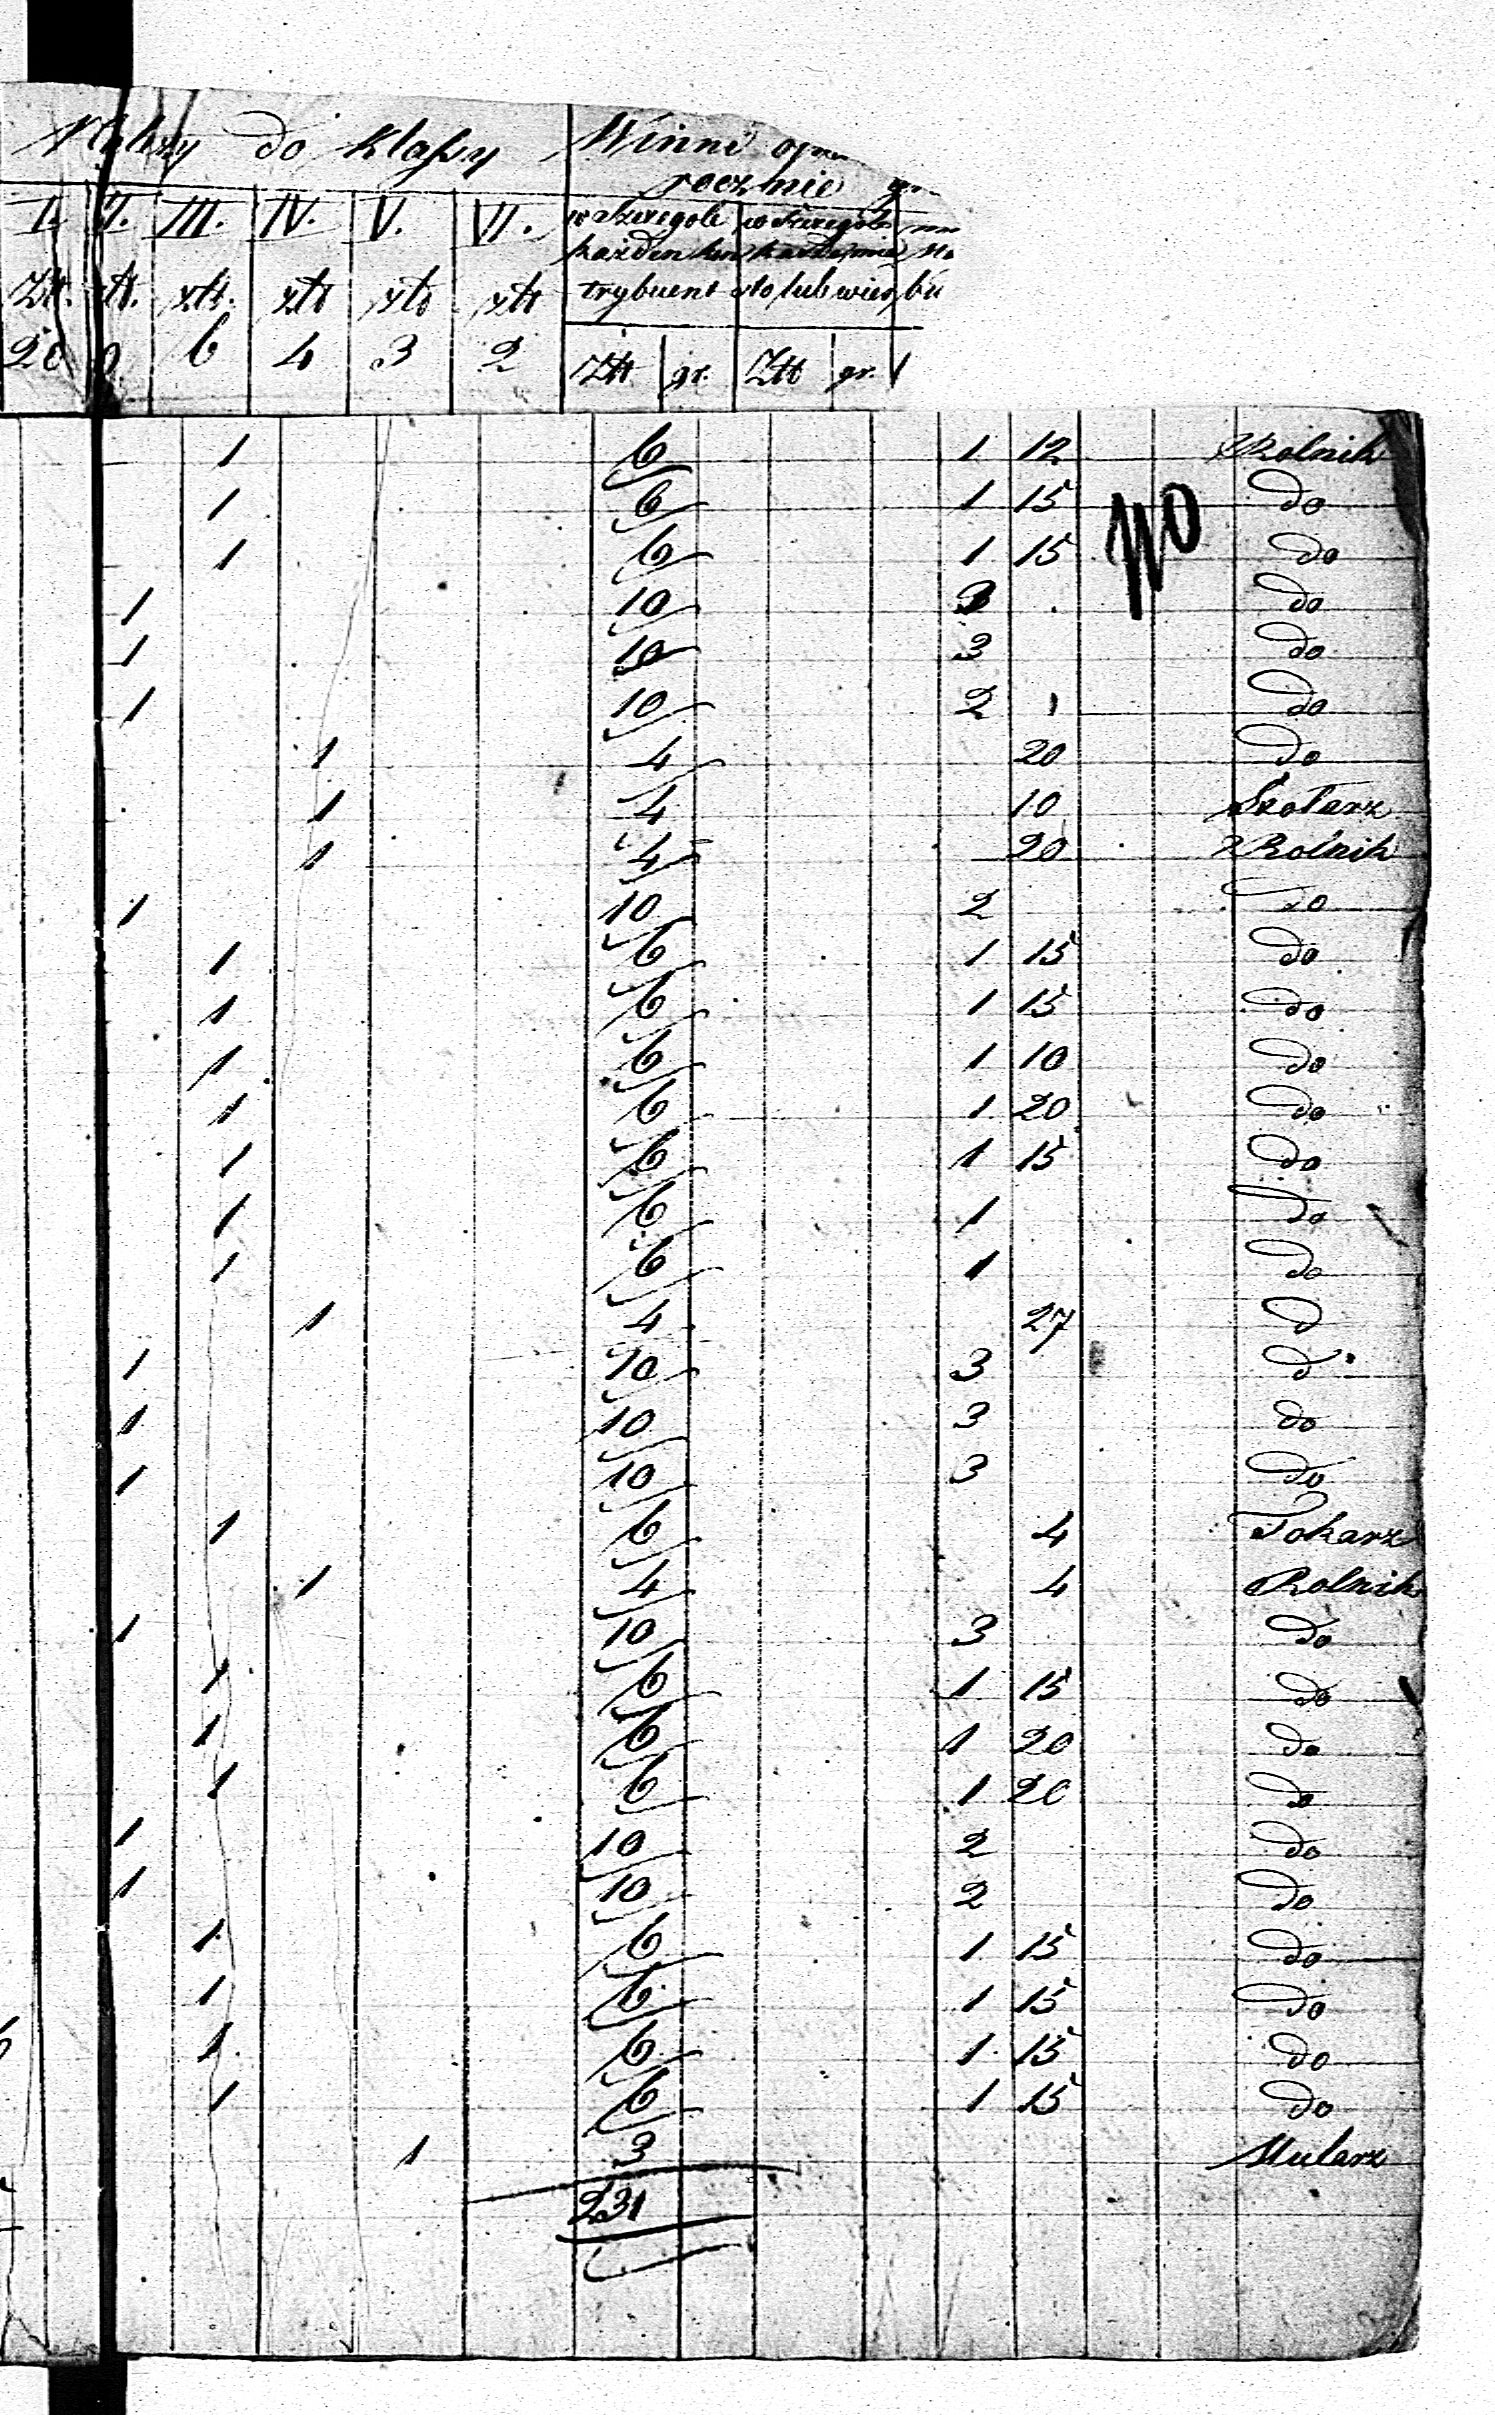 do Klassy Winni
rocznie
I. II. III. IV. V. VI. w szczególe w szczególe
każden kon każde mia
trybuent sto lub wieś
Złt. złt. złt. złt złt złt
20 6 4 3 2 Złt gr. Złt gr.
1 6 1 12 Rolnik
1 6 1 15 do
110
1 6 1 15 do
1 10 3 do
1 10 3 do
1 10 2 do
1 4 20 do
1 4 10 Stolarz
1 4 20 Rolnik
1 10 2 do
1 6 1 15 do
1 6 1 15 do
1 6 1 10 do
1 6 1 20 do
1 6 1 15 do
1 6 1 do
1 6 1 do
1 4 27 d
1 10 3 do
1 10 3 do
1 10 3 do
1 6 4 Tokarz
1 4 4 Rolnik
1 10 3 do
1 6 1 15 do
1 6 1 20 do
1 6 1 20 do
1 10 2 do
1 10 2 do
1 6 1 15 do
1 6 1 15 do
1 6 1 15 do
1 6 1 15 do
1 3 Mularz
231